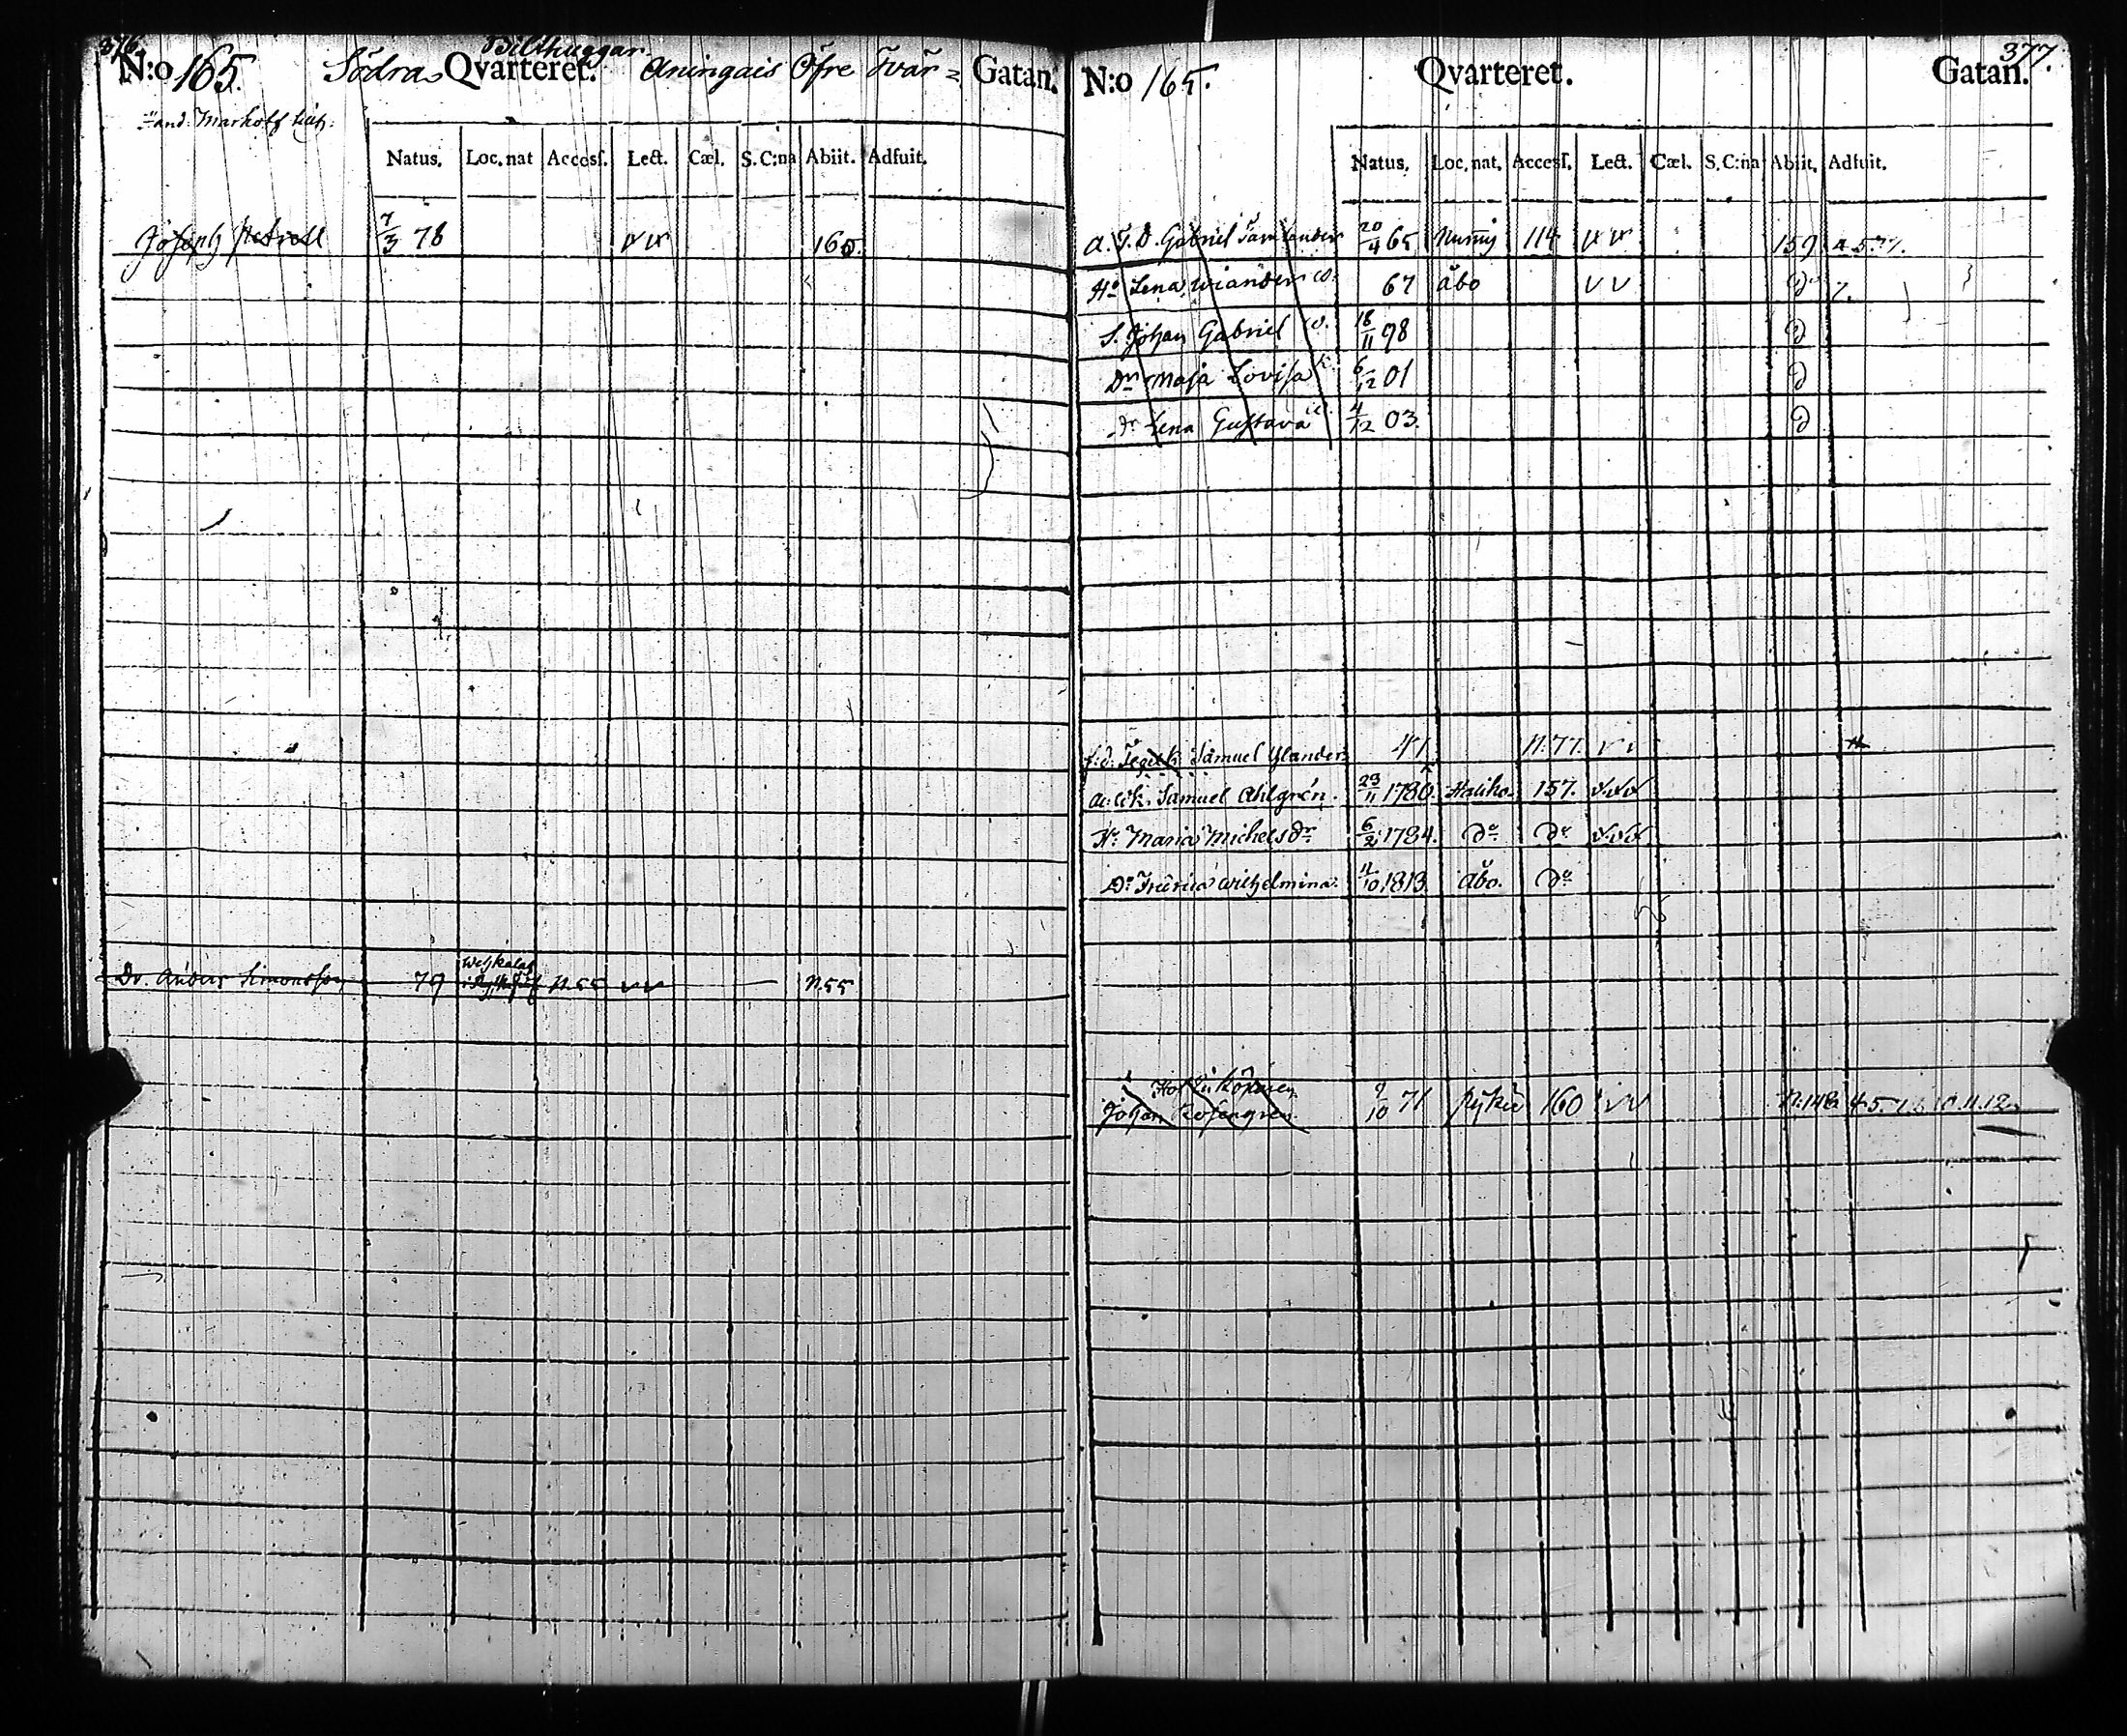 376.
Bilthuggar
N:o 165. Södra Qvarteret. Aningais Öfre Tvär= Gatan.
Hand: Markoff
Natus. Loc. nat Accesſ. Lect. Cæl. S. C:na Abiit. Adfuit.
Joseph Petrell 7/3 78 vv 160.
Dr. Anders Simonsson 79 N.55 vv N.55
377.
N:o 165. Qvarteret. Gatan.
Natus. Loc. nat. Accesſ. Lect. Cæl. S. C:na Abiit. Adfuit.
Gabriel 20/4 65 114 vv 159 4. 5. 7.
Lena Wiander 67 Åbo vv do 7.
S. Johan Gabriel 18/11 98 d
Dr Maja Lovisa 6/12 01 d
Dr Lena Gustava 4/12 03. d
f:d. Samuel Ylander 41. N.77. vv
Samuel Ahlgrén. 23/11 1780. Haliko. 157. vvv
Hu Maria Michelsdr 6/2 1784. do do vvv
Dr Fredrica Wilhelmina. 11/10 1813. Åbo. do
Johan Rosengren 9/10 71 160 vv N.148 4. 5. 10. 11. 12.